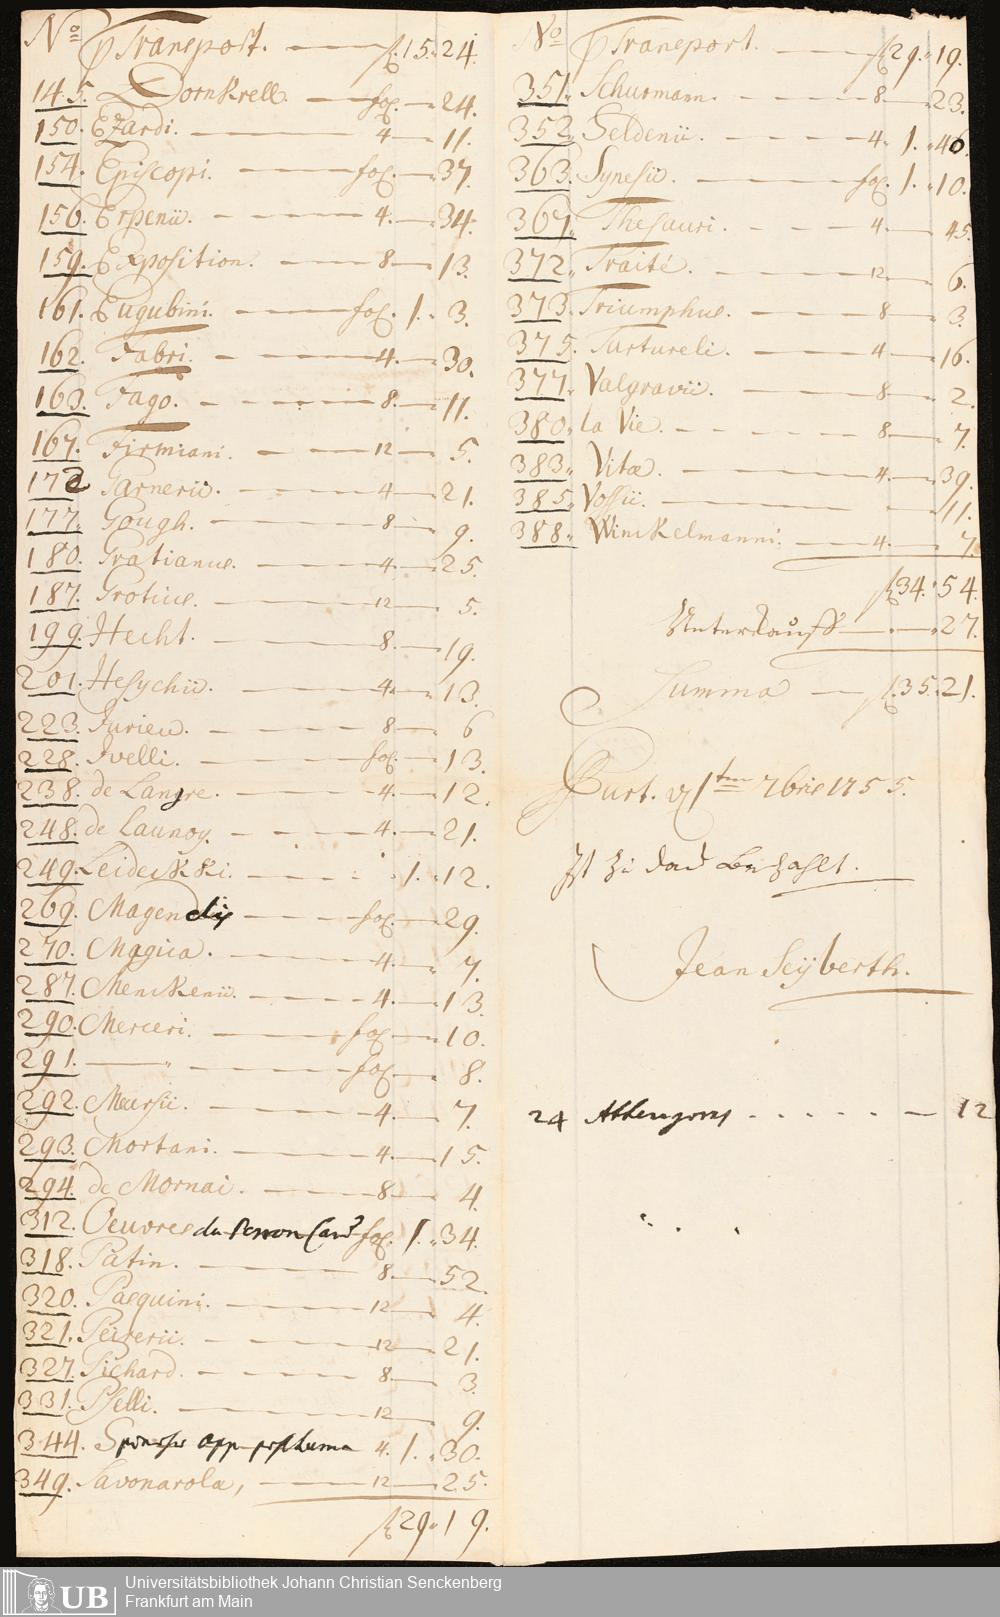 No p Transport. fl. 15. 24.
145. Dornkrell. fol. 24.
150. Ezardi. 4. 11.
154. Episcopi. fol. 37.
156. Erpenii. 4. 34.
159. Exposition. 8. 13.
161. Eugubini. fol. 1. 3.
162. Fabri. 4. 30.
163. Fago. 8. 11.
167. Firmiani. 12 5.
172 Garnerii. 4. 21.
177. Gough. 8. 9.
180. Gratianus. 4. 25.
187. Grotius. 12. 5.
199. Hecht. 8. 19.
201. Hesychii. 4. 13.
223. Jurieu. 8. 6
228. Ivelli. fol. 13.
238. de Langre. 4. 12.
248. de Launoy. 4. 21.
249. Leideckki. 1. 12.
269. Magendis fol. 29.
270. Magica. 4. 7.
287. Menckenii. 4. 13.
290. Merceri. fol. 10.
291. " fol. 8.
292. Meursii. 4. 7.
293. Mortani. 4. 15.
294. de Mornai. 8. 4.
312. Oeuvres du Perron Card fol. 1. 34.
318. Patin. 8. 52.
320. Pasquini. 12. 4.
321. Peirerii. 12. 21.
327. Pichard. 8. 3.
331. Pselli. 12. 9.
344. opp. posthuma 4. 1. 30.
349. Savonarola, 12 25.
fl. 29. 19.
No p Transport. fl. 29. 19.
351. Schurmann. 8. 23.
352. Seldenii. 4. 1. 46.
363. Synesii. fol. 1. 10.
367. Thesauri. 4. 45.
372. Traité. 12. 6.
373. Triumphus. 8 3.
375. Tartureli. 4. 16.
377. Valgravii. 8 2.
380. la Vie. 8 7.
383. Vitae. 4. 39.
385. Vossii. 11.
388. Winckelmanni. 4. 7.
fl. 34. 54.
Unterkauff 27.
Summa fl. 35. 21.
1tm 7bris 1755.
Ist zu danck bezahlt.
Jean Seÿberth.
24 12
UB Universitätsbibliothek Johann Christian Senckenberg
Frankfurt am Main